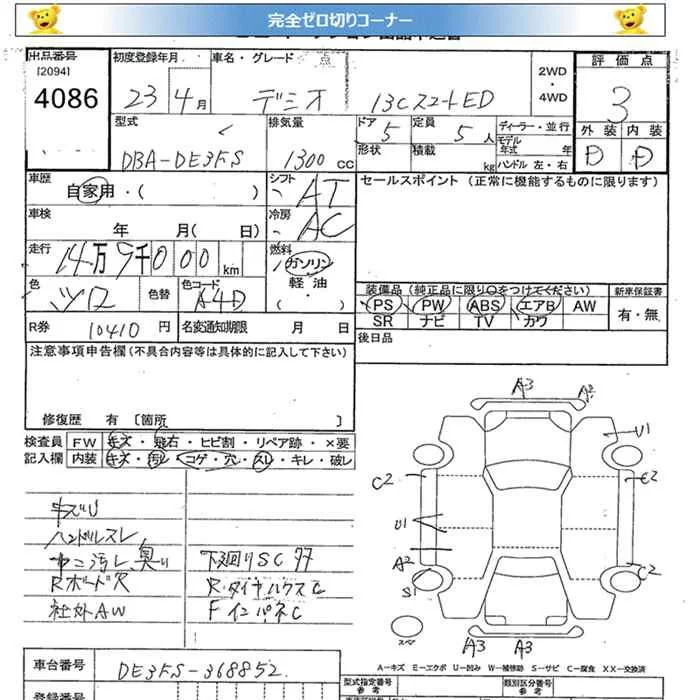 完全ゼロ切りコーナー
出品番号 初度登録年月 車名・グレード 点 2WD ・ 4WD 評価点
[2094]
4086 23年 4月 デミオ 13CスマートED 3
型式 排気量 ドア 定員 ディーラー・並行 外装 内装
DBA-DE3FS 1300 CC 5 5人 モデル年式 年 D D
形状 積載 kg ハンドル 左・右
車歴 自家用・( ) シフト AT セールスポイント(正常に機能するものに限ります)
車検 年 月( 日) 冷房 AC
走行 14万9千000km 燃料 ガソリン・軽油・( )
色 シロ 色替 色コード A4D
装備品(純正品に限り○をつけてください) 新車保証書
PS PW ABS エアB AW 有・無
SR ナビ TV カワ
R券 10410円 名変通知期限 月 日 後日品
注意事項申告欄(不具合内容等は具体的に記入して下さい)
修復歴 有 〔箇所 〕
検査員 FW キズ・飛石・ヒビ割・リペア跡・×要
記入欄 内装 キズ・汚レ・コゲ・穴・スレ・キレ・破レ
キズU
ハンドルスレ
汚レ 臭い 下廻りSC サビ
Rボード穴 R・タイヤハウスC
社外AW FインパネC
A3 A2
U1
C2 C2
U1
A2 C2
S1
スペ
A3 A3
A-キズ E-エクボ U-凹み W-補修跡 S-サビ C-腐食 XX-交換済
車台番号 DE3FS-368852
型式指定番号 参考 類別区分番号 参考
登録番号